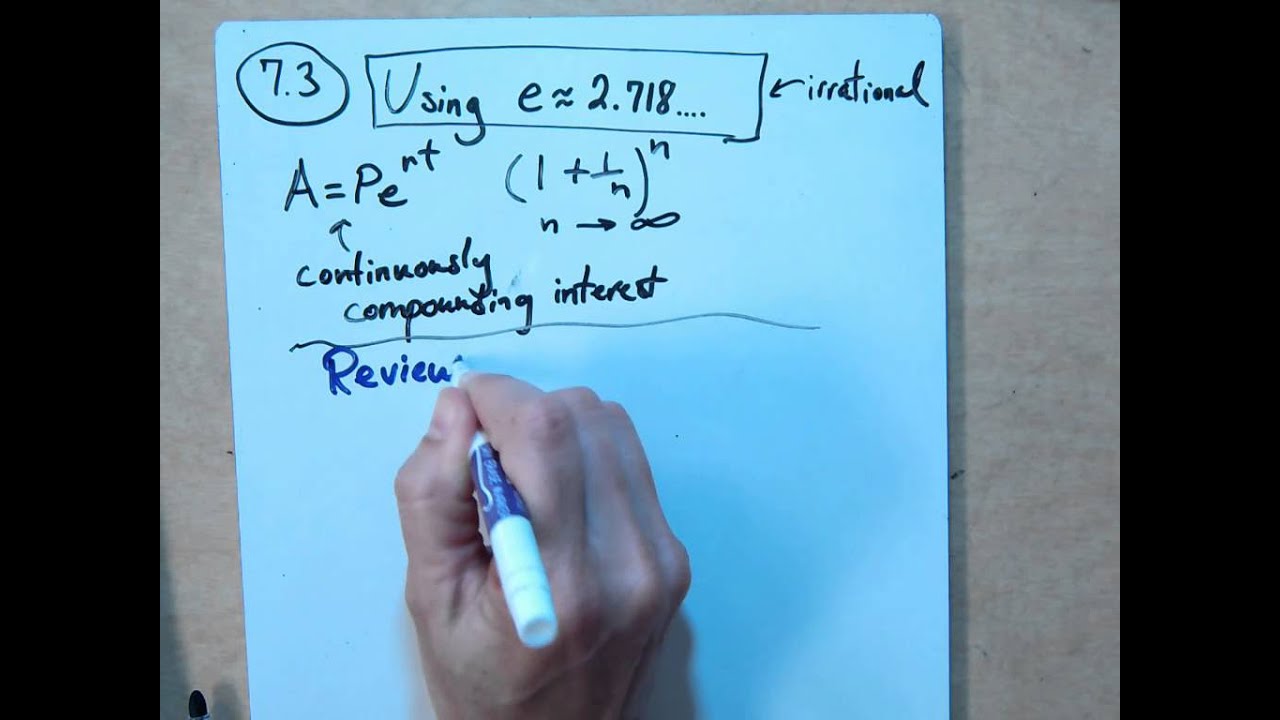 7.3 Using e ≈ 2.718.... ← irrational
A = Pe^rt (1 + 1/n)^n
n → ∞
↑
continuously
compounding interest
Review